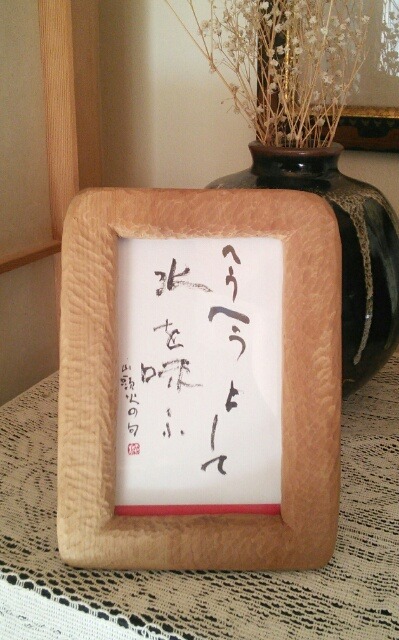 へうへうとして
水を味ふ
山頭火の句